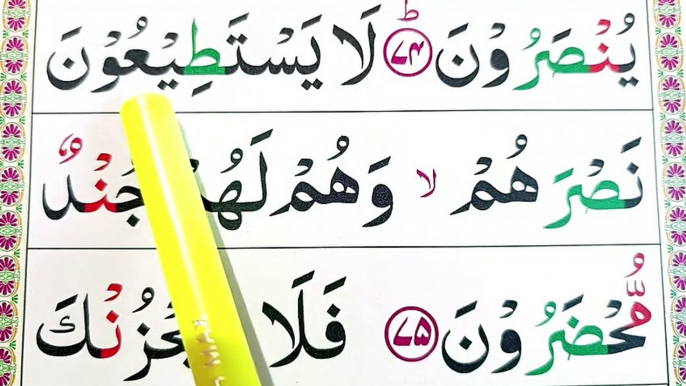 يُنْصَرُوْنَ ﴿۷۴﴾ؕ لَا يَسْتَطِيْعُوْنَ
نَصْرَهُمْ ۙ وَهُمْ لَهُمْ جُنْدٌ
مُّحْضَرُوْنَ ﴿۷۵﴾ فَلَا